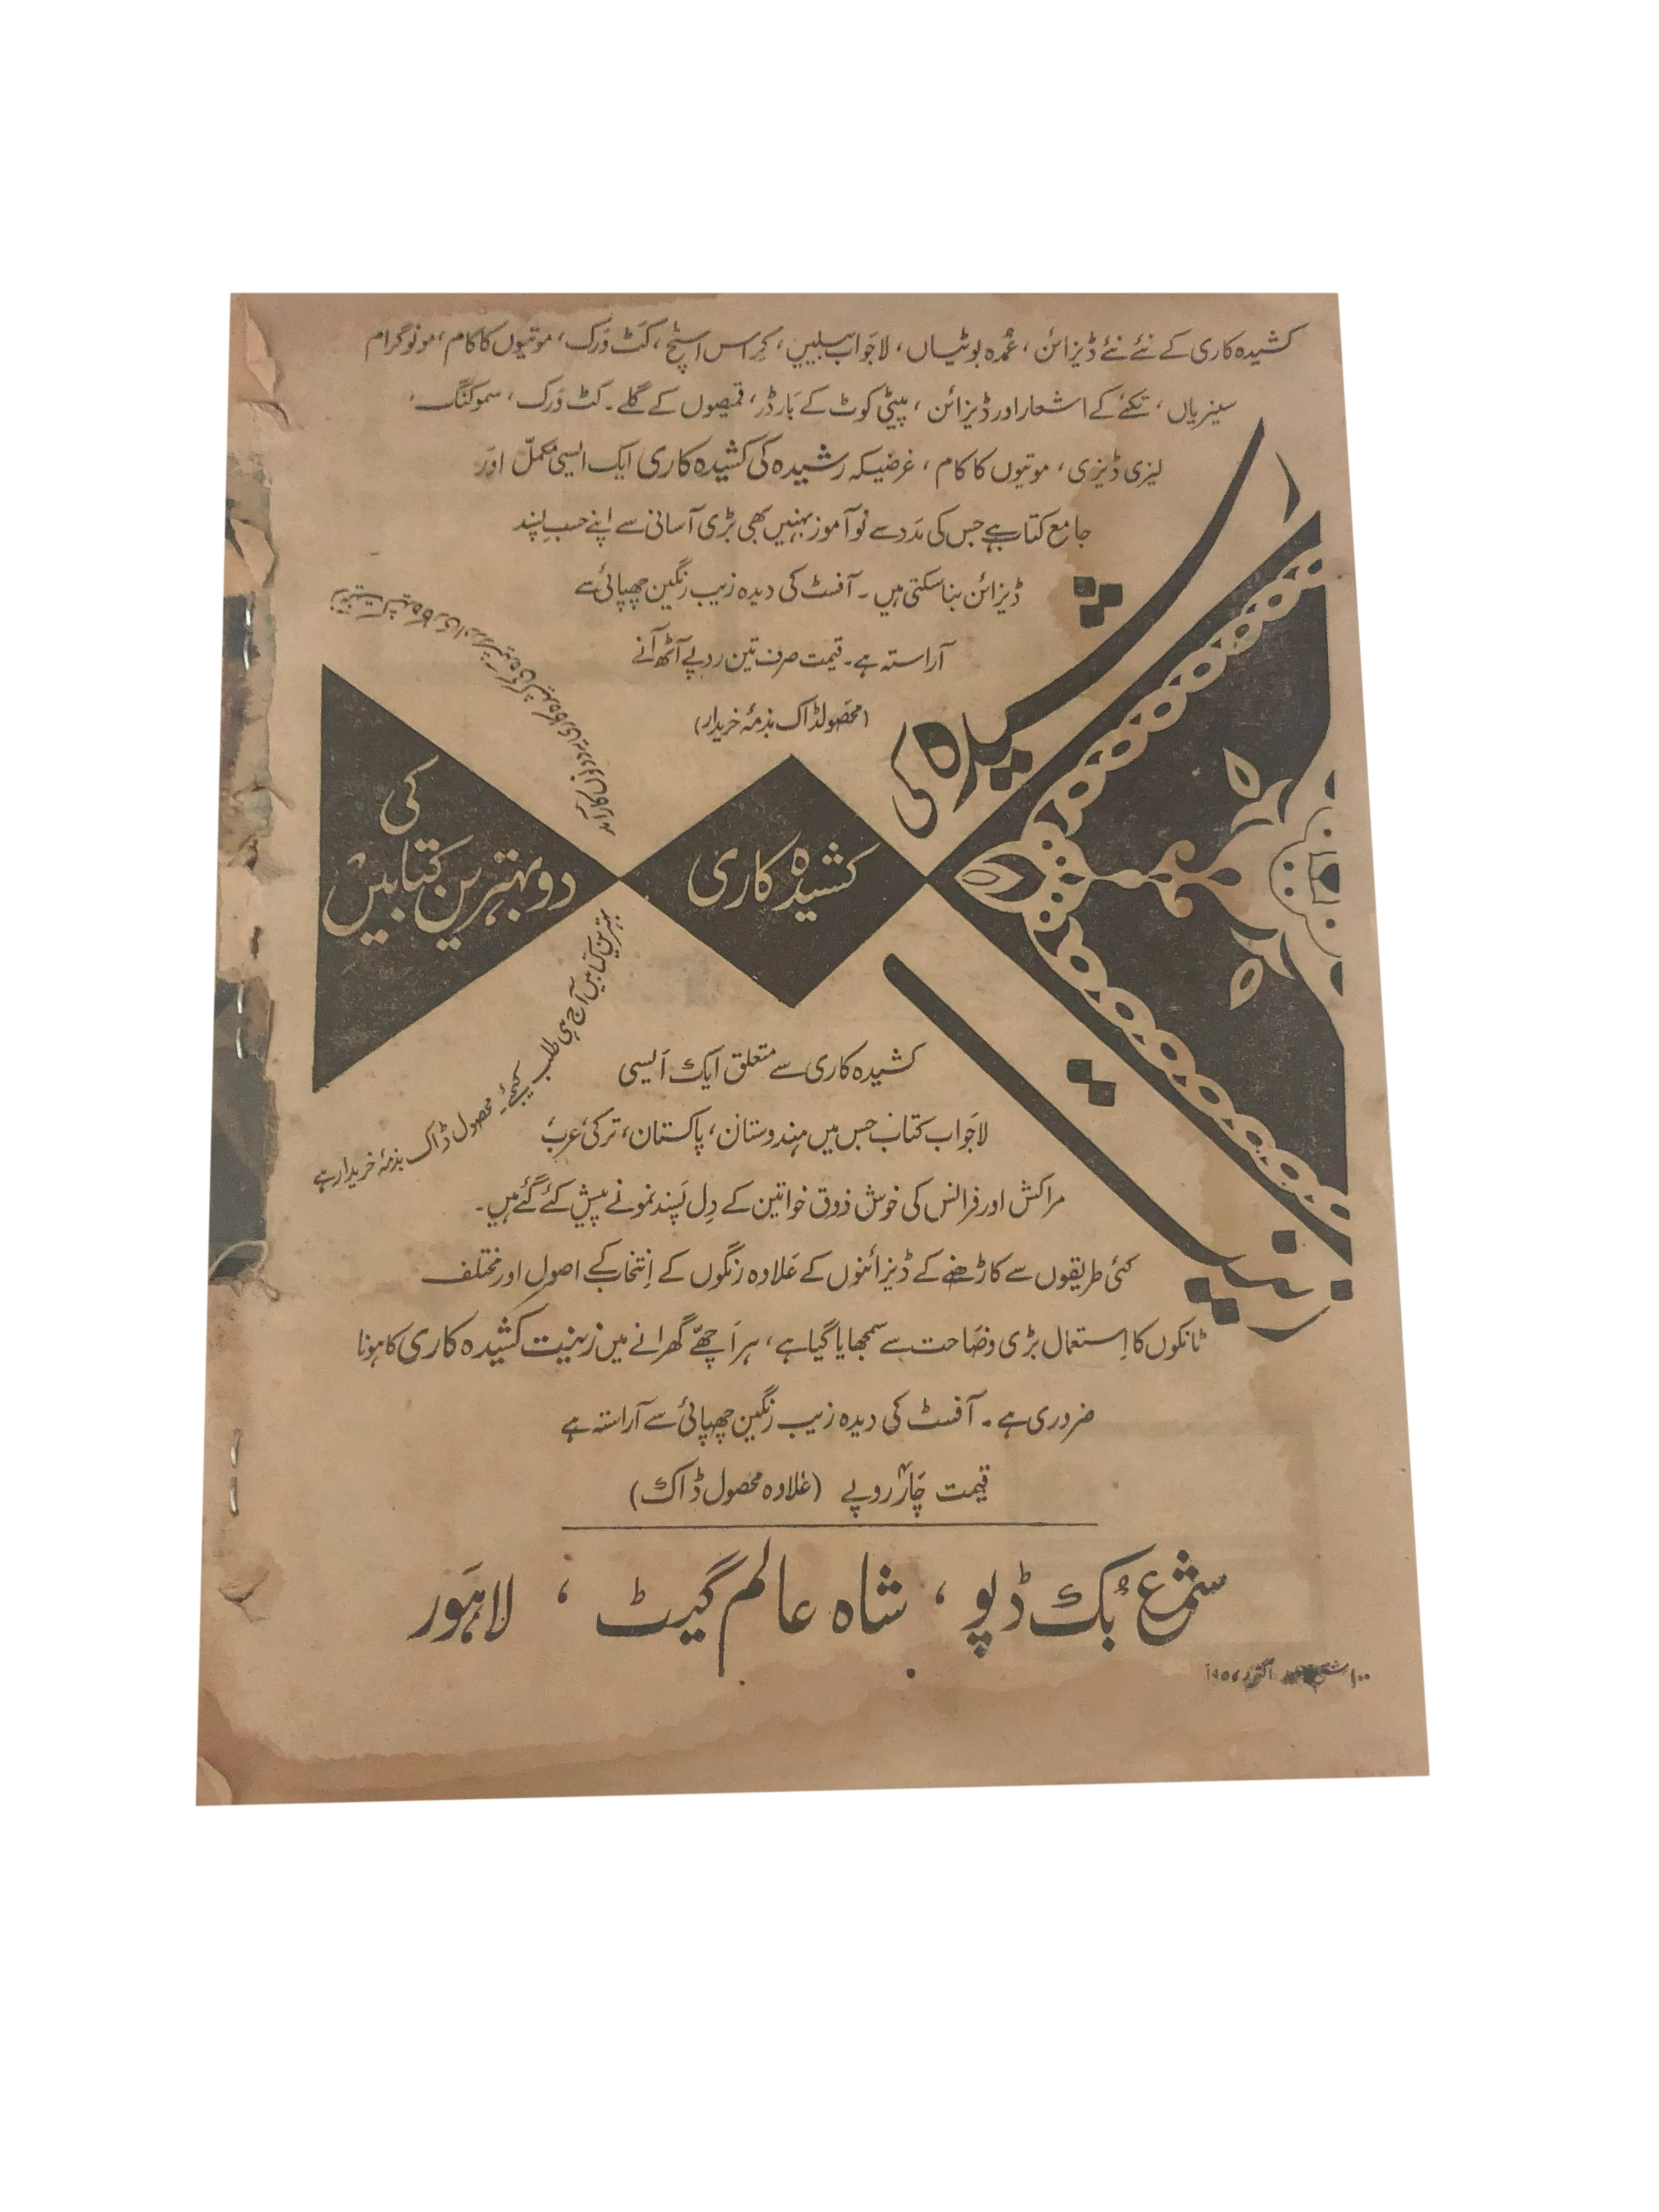 کشیدہ کاری کے نئے نئے ڈیزائن، عُمدہ بوٹیاں، لاجواب بیلیں، کراس اسٹچ، کَٹ وَرک، موتیوں کا کام، مونوگرام
سینریاں، تکئے کے اشعار اور ڈیزائن، پیٹی کوٹ کے بَارڈر، قمیصوں کے گلے۔ کٹ وَرک، سموکنگ،
لیزی ڈیزی، موتیوں کا کام، غرضیکہ رشیدہ کی کشیدہ کاری ایک ایسی مکملّ اور
جامع کتاب ہے جس کی مَدد سے نوآموز بہنیں بھی بڑی آسانی سے اپنے حسبِ پسند
ڈیزائن بنا سکتی ہیں۔ آفسٹ کی دیدہ زیب رنگین چھپائی سے
آراستہ ہے۔ قیمت صرف تین روپے آٹھ آنے
(محصولڈاک بذمۂ خریدار)
رشیدہ کی
کشیدہ کاری
کی
دو بہترین کتابیں
زینت کشیدہ کاری اور رشیدہ کی کشیدہ کاری یہ دونوں کارآمد
بہترین کتابیں آج ہی طلب کیجئے۔ محصول ڈاک بذمۂ خریدار ہے
زینت
کشیدہ کاری سے متعلق ایک اَیسی
لاجَواب کتاب جس میں ہندوستان، پاکستان، ترکی عرب
مراکش اور فرانس کی خوش ذوق خواتین کے دِل پَسند نمونے پیش کئے گئے ہیں۔
کئی طریقوں سے کاڑھنے کے ڈیزائنوں کے عَلاوہ رنگوں کے اِنتخاب کے اصول اور مختلف
ٹانکوں کا اِستعمال بڑی وضَاحت سے سمجھایا گیا ہے، ہر اَچھّے گھرانے میں زینت کشیدہ کاری کا ہونا
ضروری ہے۔ آفسٹ کی دیدہ زیب رنگین چھپائی سے آراستہ ہے
قیمت چَار روپے (عَلاوہ محصول ڈاک)
شمع بُک ڈپو، شاہ عالم گیٹ، لاہَور
۱۰۰ اکتوبر ۱۹۵۷ء